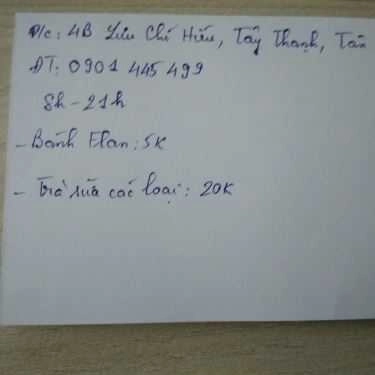 Đ/c: 4B Lưu Chí Hiếu, Tây Thạnh, Tân
ĐT: 0901 445 499
8h - 21h
- Bánh Flan: 5K
- Trà sữa các loại: 20K